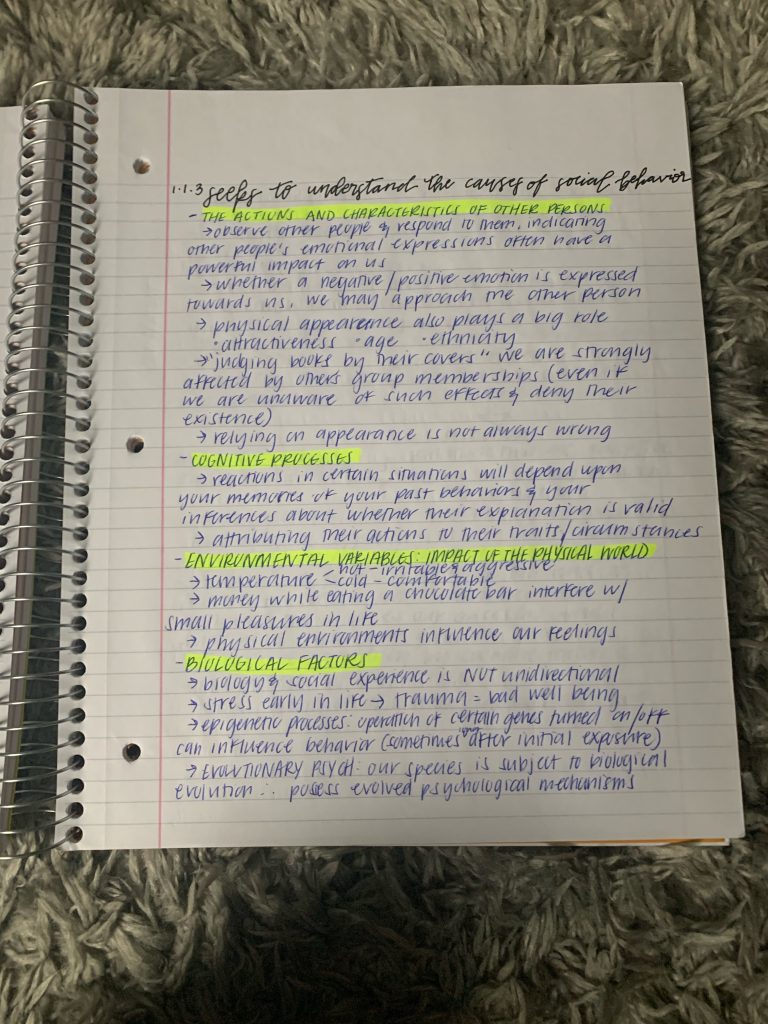 1.1.3 seeks to understand the causes of social behavior
- THE ACTIONS AND CHARACTERISTICS OF OTHER PERSONS
→ observe other people & respond to them, indicating
other people's emotional expressions often have a
powerful impact on us
→ whether a negative/positive emotion is expressed
towards us, we may approach the other person
→ physical appearance also plays a big role
• attractiveness • age • ethnicity
→ "judging books by their covers" we are strongly
affected by others group memberships (even if
we are unaware of such effects & deny their
existence)
→ relying on appearance is not always wrong
- COGNITIVE PROCESSES
→ reactions in certain situations will depend upon
your memories of your past behaviors & your
inferences about whether their explanation is valid
→ attributing their actions to their traits/circumstances
- ENVIRONMENTAL VARIABLES: IMPACT OF THE PHYSICAL WORLD
hot - irritable & aggressive
→ temperature < cold - comfortable
→ money while eating a chocolate bar interfere w/
small pleasures in life
→ physical environments influence our feelings
- BIOLOGICAL FACTORS
→ biology & social experience is NOT unidirectional
→ stress early in life → trauma = bad well being
→ epigenetic processes: operation of certain genes turned on/off
can influence behavior (sometimes after initial exposure)
→ EVOLUTIONARY PSYCH: our species is subject to biological
evolution ∴ posess evolved psychological mechanisms